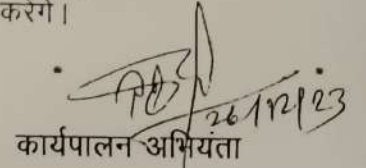 करेगें।
26/12/23
कार्यपालन अभियंता